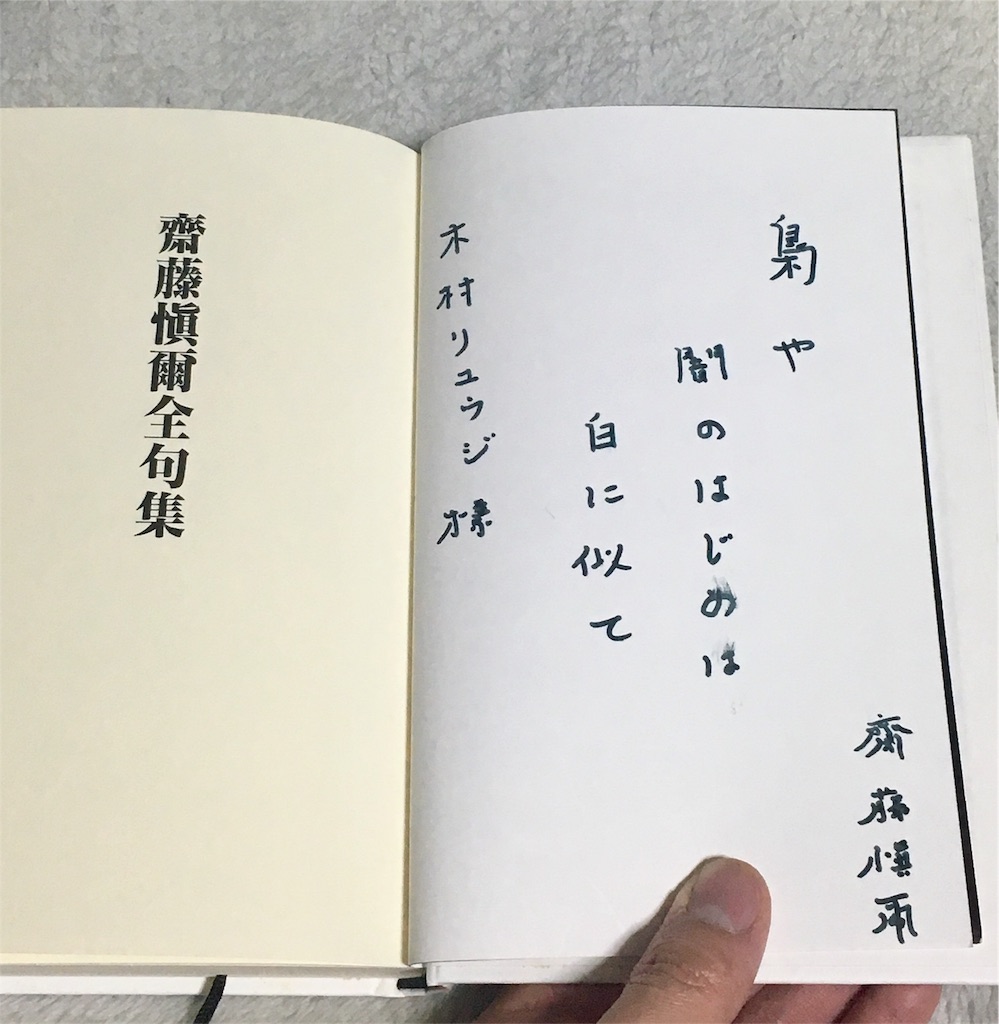 齋藤愼爾全句集
梟や
闇のはじめは
白に似て
齋藤愼爾
木村リュウジ様